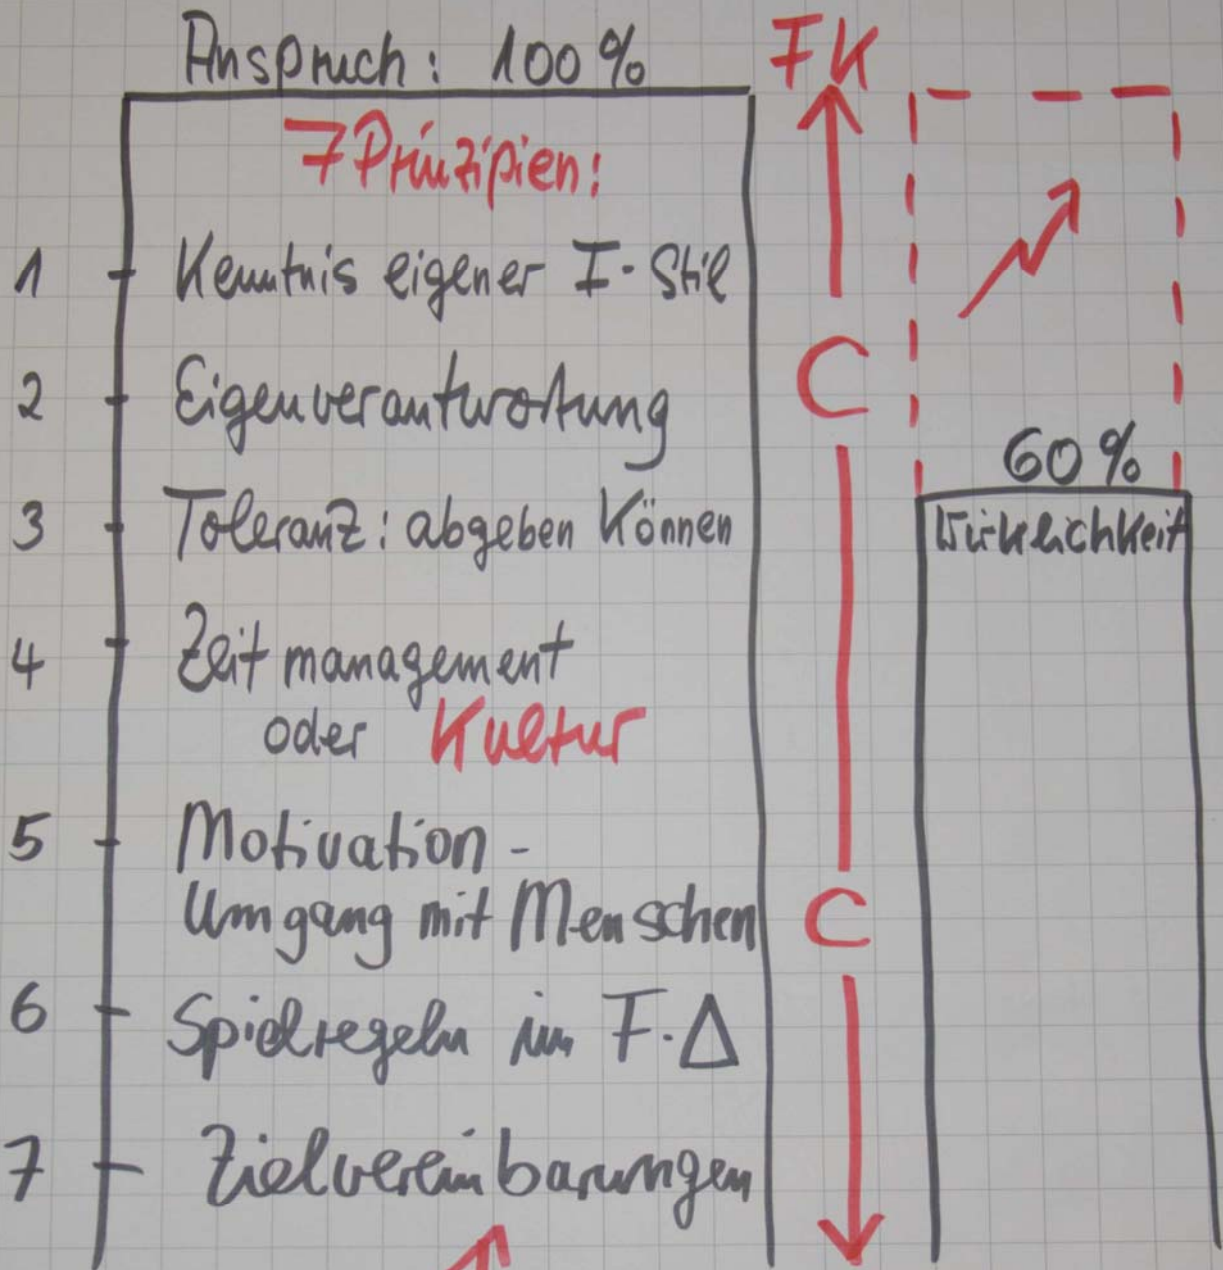 Anspruch: 100% FK
7 Prinzipien:
1 Kenntnis eigener I-Stil
C
2 Eigenverantwortung
60%
3 Toleranz: abgeben können
Wirklichkeit
4 Zeitmanagement
oder Kultur
5 Motivation -
Umgang mit Menschen
C
6 Spielregeln im F.Δ
7 Zielvereinbarungen